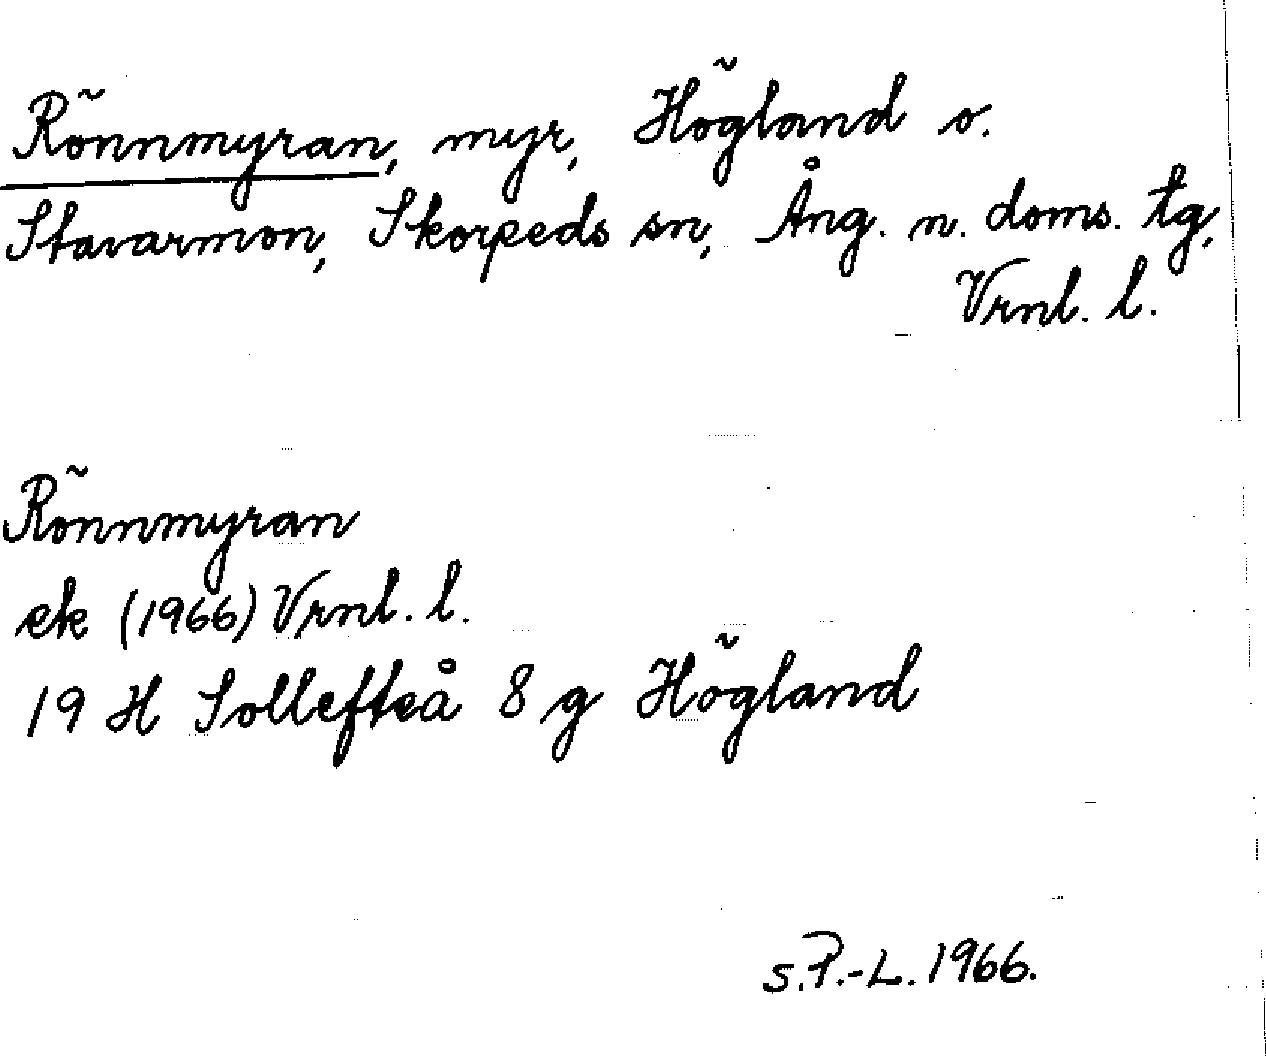 Rönnmyran, myr, Högland o.
Stavarmon, Skorpeds sn, Ång. n. doms. tg,
Vrnl. l.
Rönnmyran
ek (1966) Vrnl. l.
19 H Sollefteå 8 g Högland
S.P.-L. 1966.